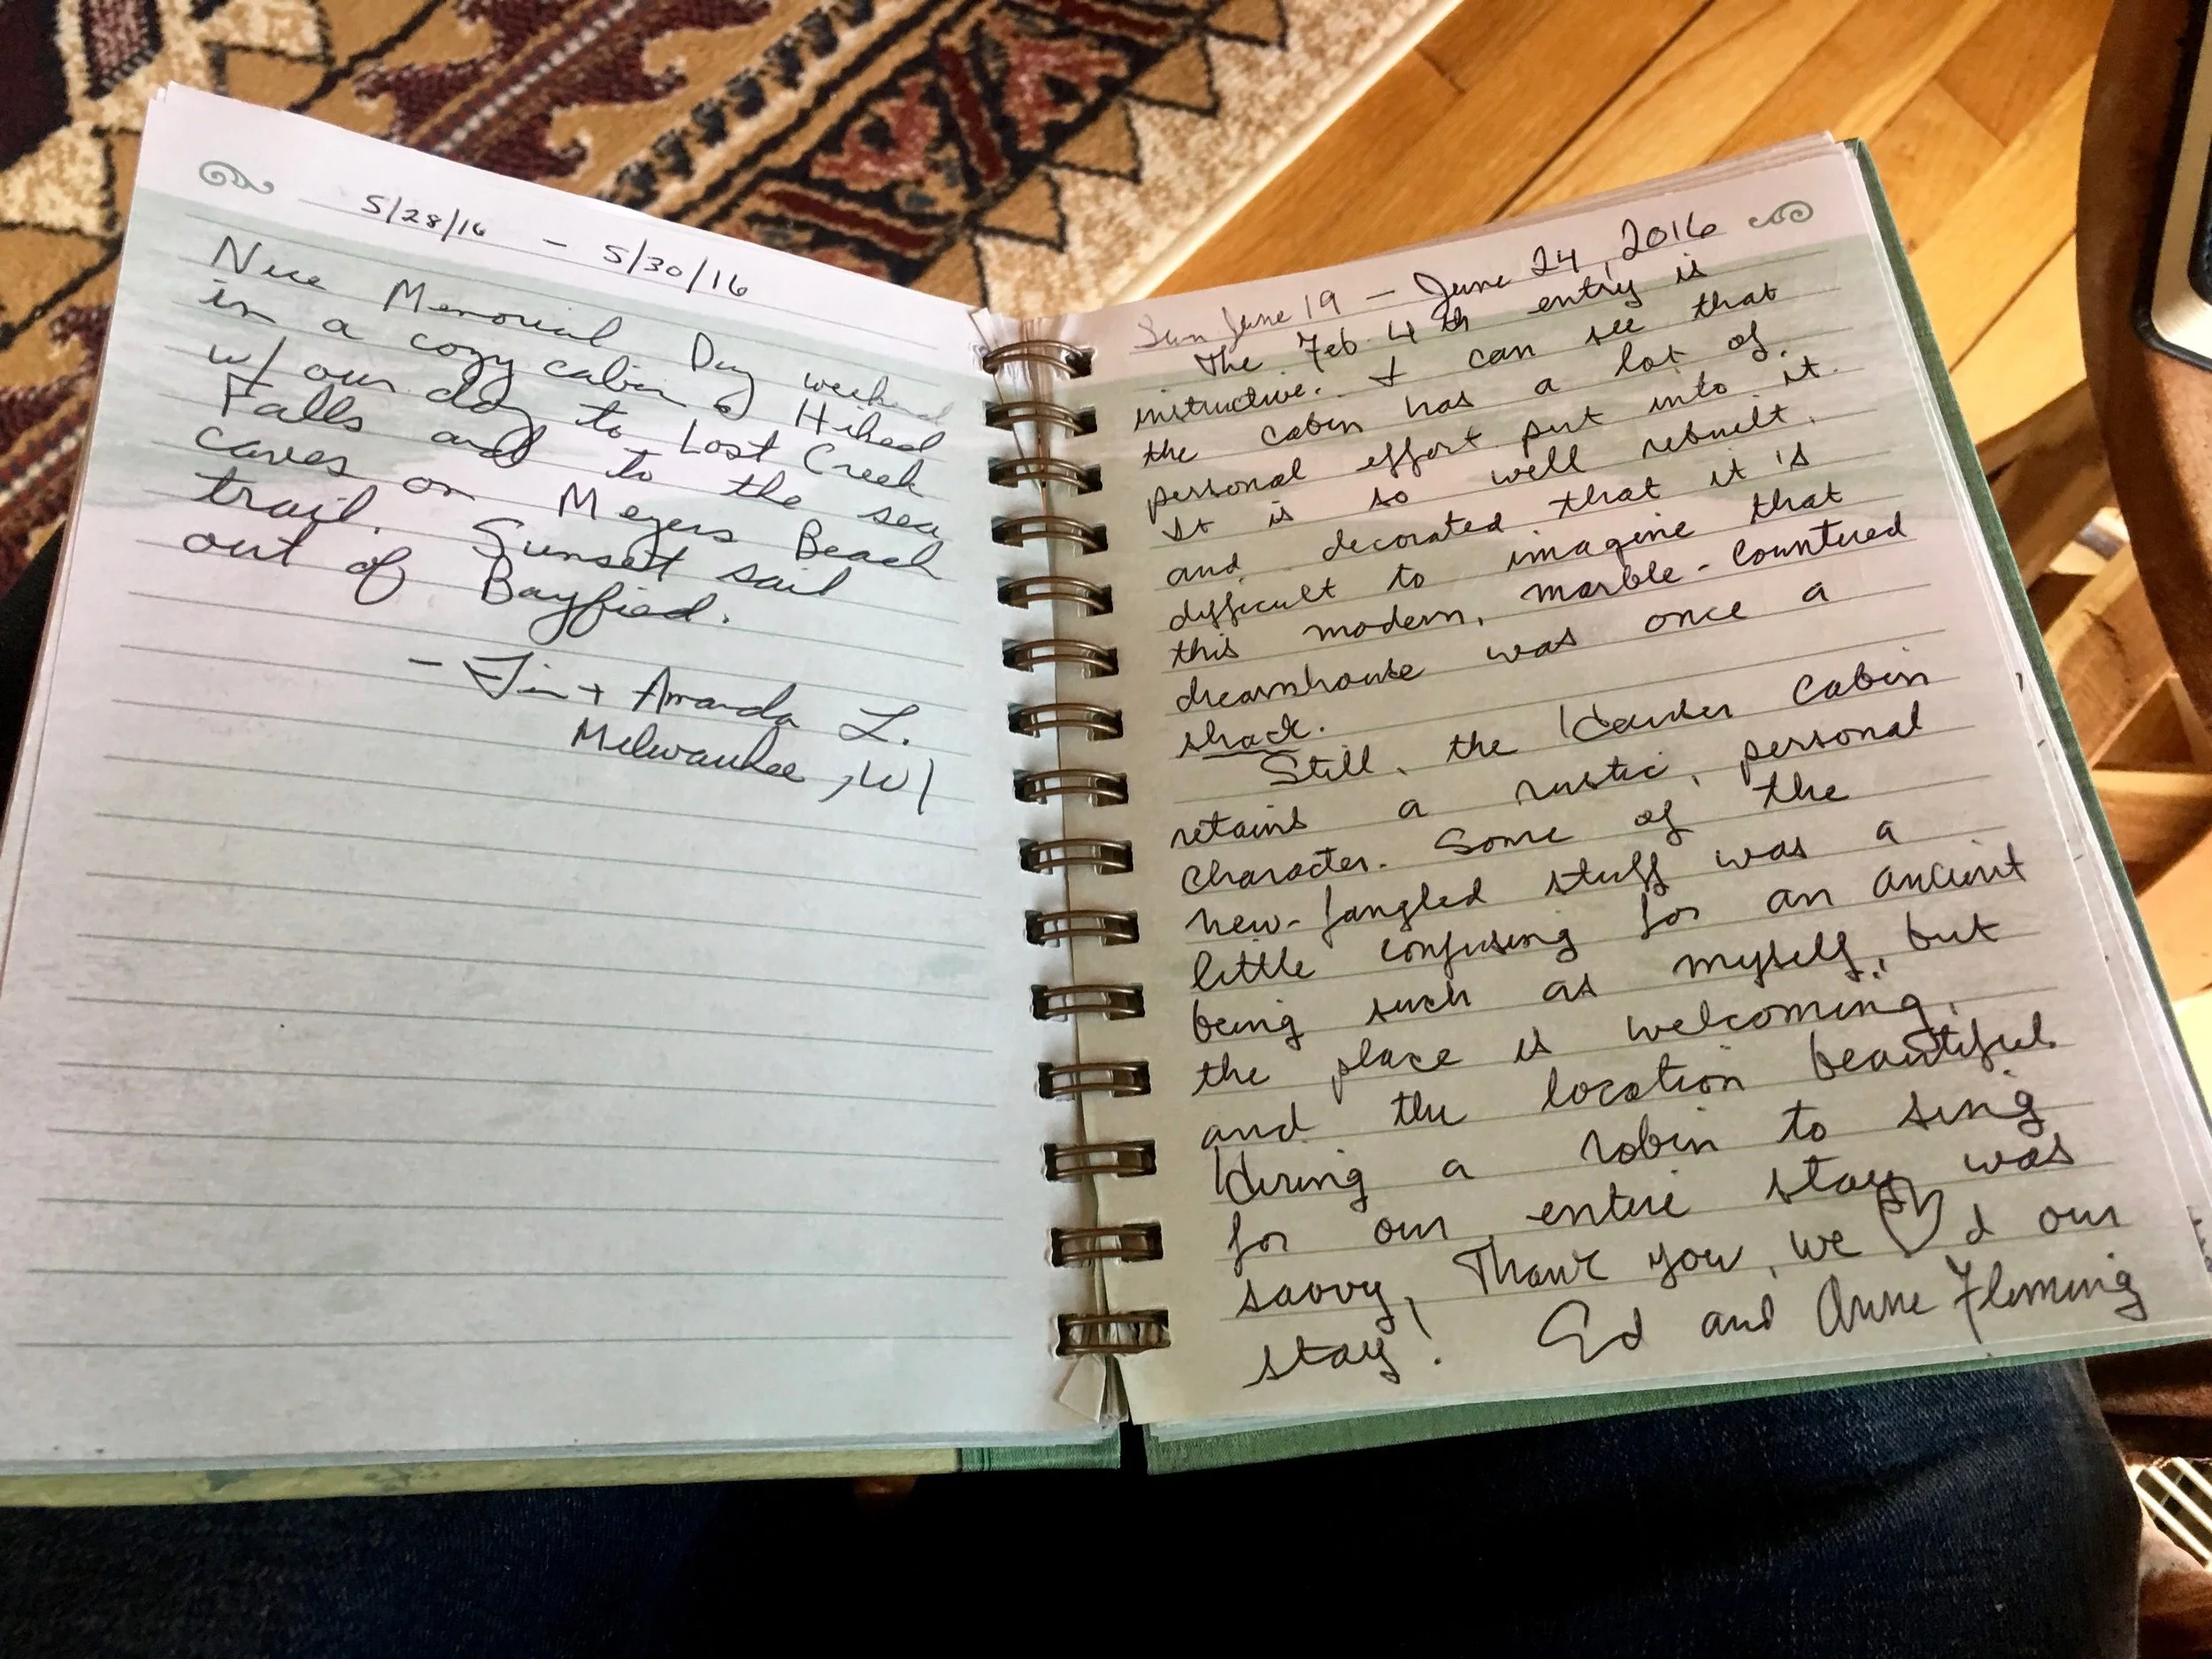 5/28/16 - 5/30/16
Nice Memorial Day weekend
in a cozy cabin. Hiked
w/ our dog to Lost Creek
Falls and to the sea
caves on Meyers Beach
trail. Sunset sail
out of Bayfied.
- Jim + Amanda L.
Milwaukee, WI
Sun June 19 - June 24, 2016
The Feb 4th entry is
instructive. I can see that
the cabin has a lot of
personal effort put into it.
It is so well rebuilt,
and decorated that it's
difficult to imagine that
this modern, marble-countered
dreamhouse was once a
shack.
Still, the Cabin
retains a rustic, personal
character. Some of the
new-fangled stuff was a
little confusing for an ancient
being such as myself, but
the place is welcoming,
and the location beautiful.
Hiring a robin to sing
for our entire stay was
savvy, Thank you, we ♡d our
stay! Ed and Anne Fleming